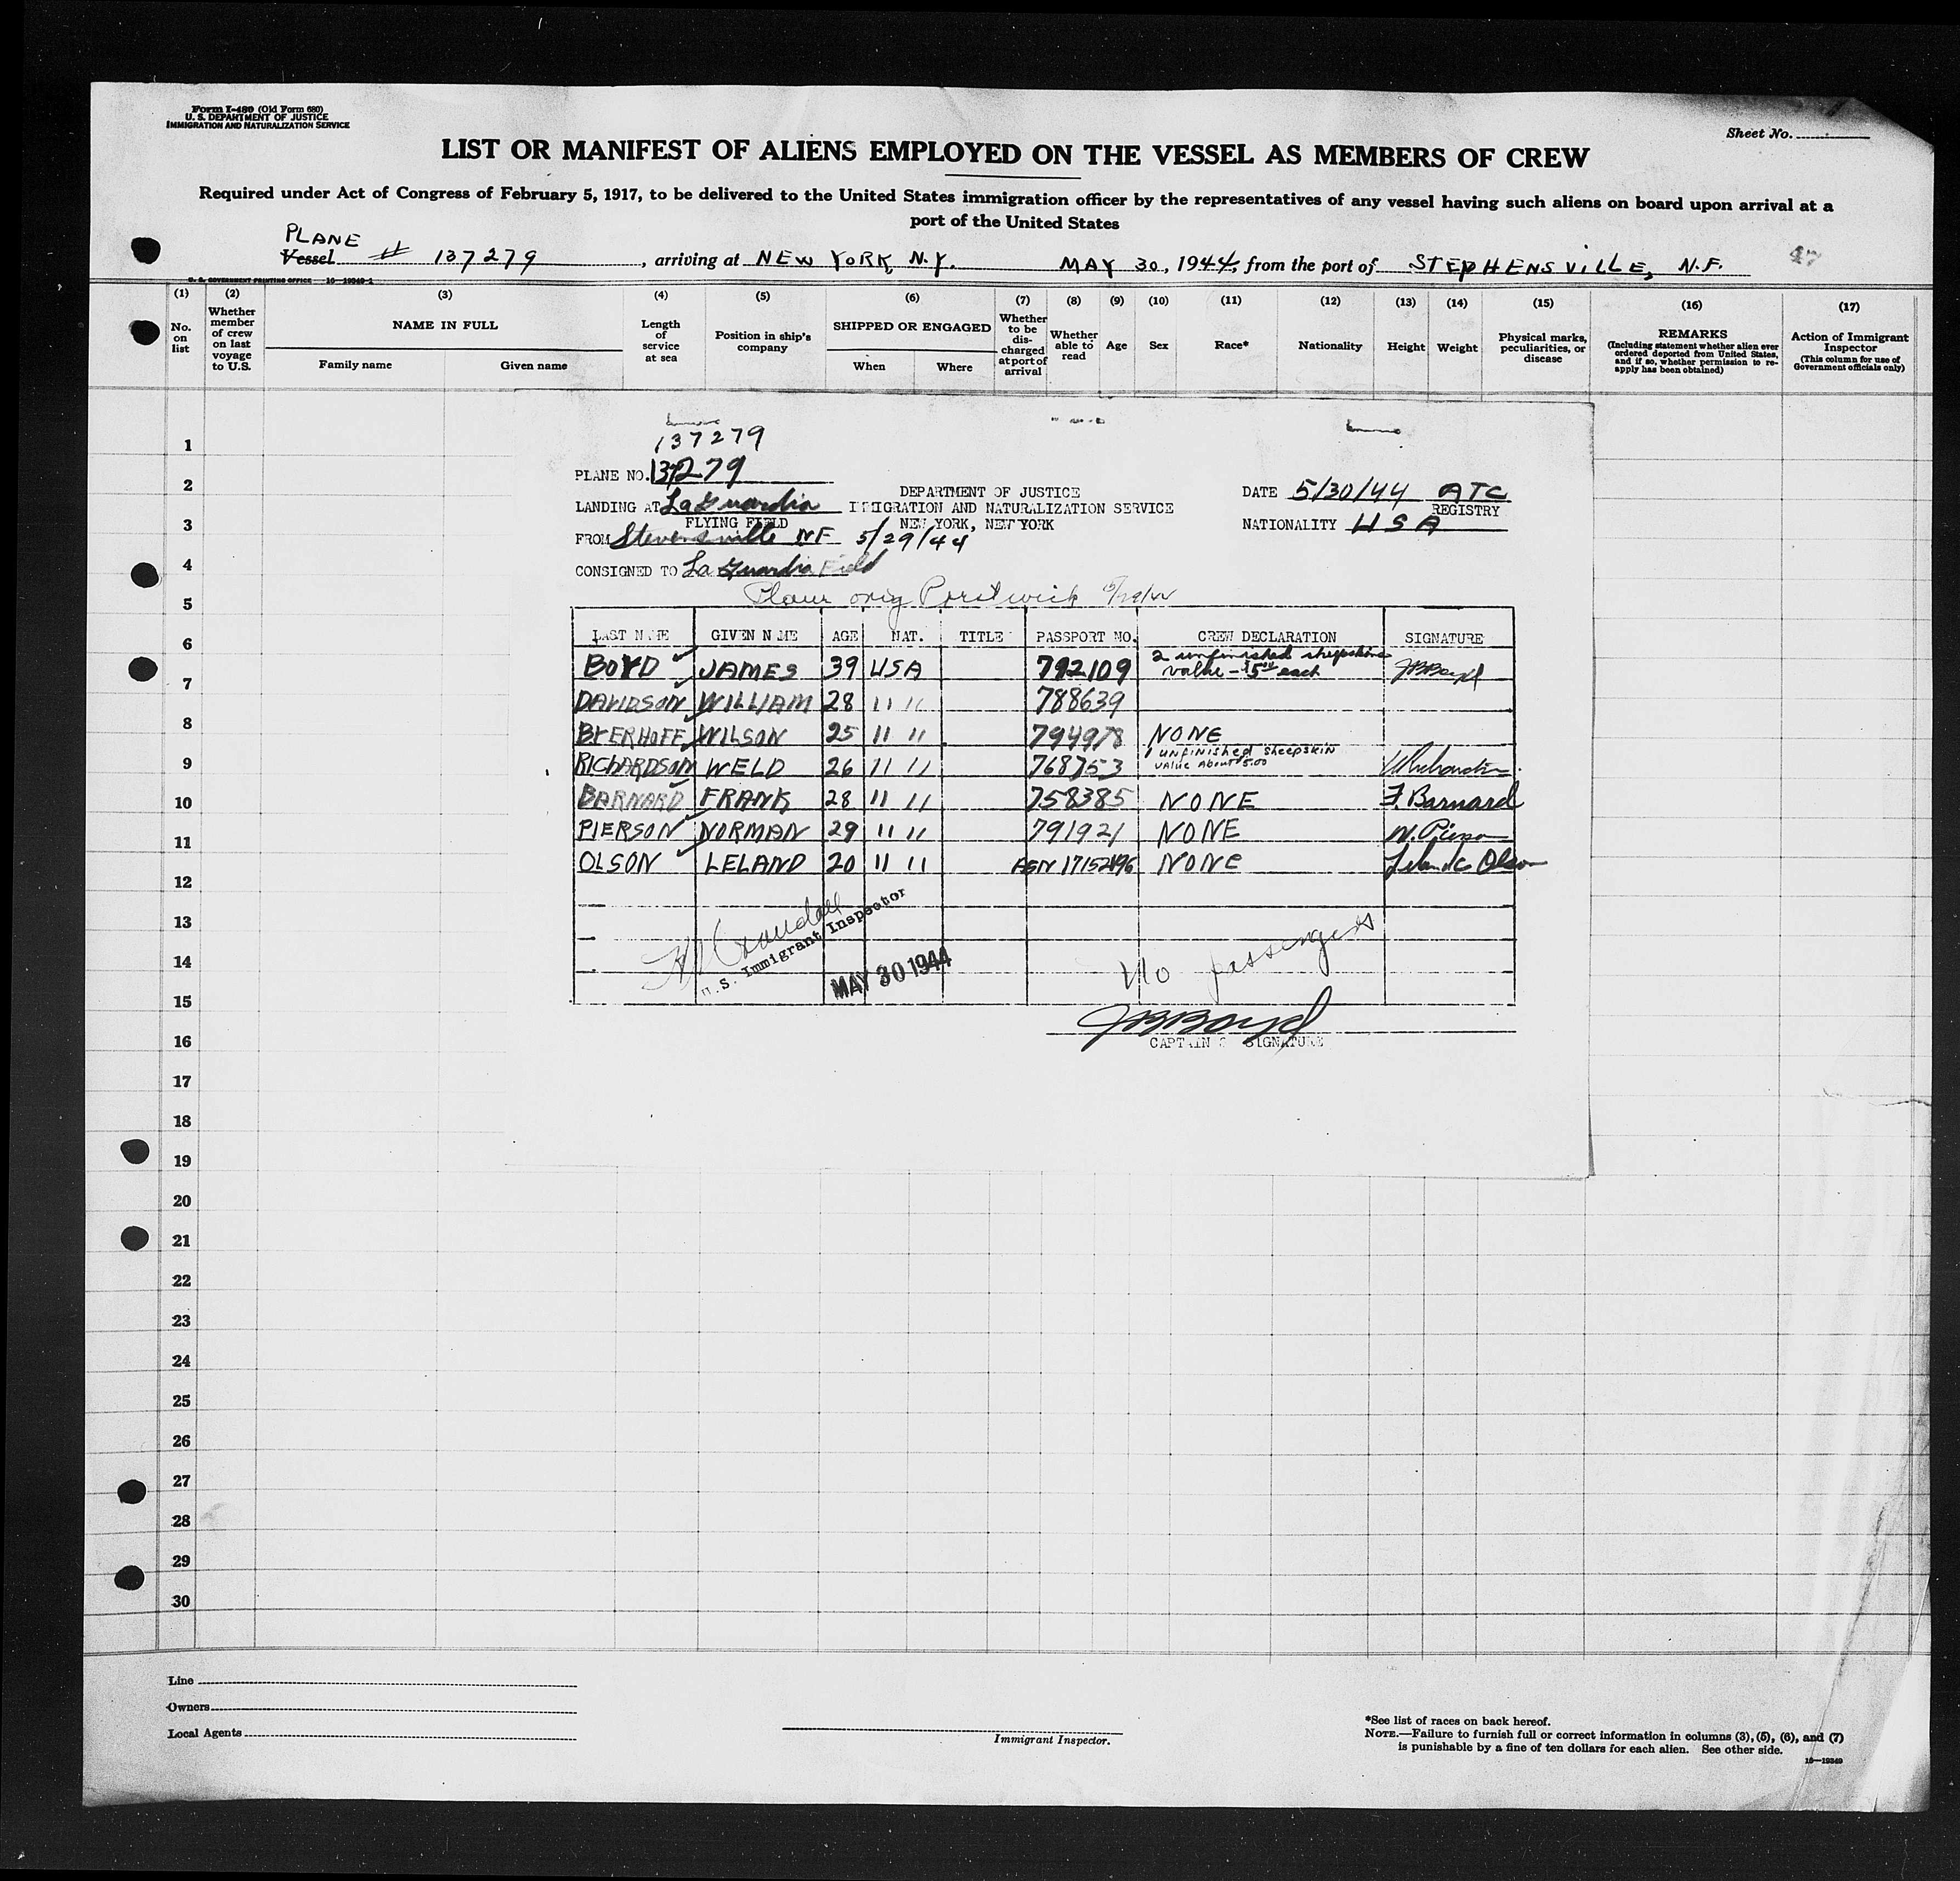 Form I-480 (Old Form 680)
U. S. DEPARTMENT OF JUSTICE
IMMIGRATION AND NATURALIZATION SERVICE
Sheet No.
LIST OR MANIFEST OF ALIENS EMPLOYED ON THE VESSEL AS MEMBERS OF CREW
Required under Act of Congress of February 5, 1917, to be delivered to the United States immigration officer by the representatives of any vessel having such aliens on board upon arrival at a
port of the United States
PLANE
Vessel # 137279, arriving at NEW YORK, N.Y. MAY 30, 1944, from the port of STEPHENSVILLE, N.F.
U. S. GOVERNMENT PRINTING OFFICE 16—19349-1
(1) (2) (3) (4) (5) (6) (7) (8) (9) (10) (11) (12) (13) (14) (15) (16) (17)
No. on list
Whether member of crew on last voyage to U.S.
NAME IN FULL
Family name Given name
Length of service at sea
Position in ship's company
SHIPPED OR ENGAGED
When Where
Whether to be discharged at port of arrival
Whether able to read
Age
Sex
Race*
Nationality
Height
Weight
Physical marks, peculiarities, or disease
REMARKS
(Including statement whether alien ever ordered deported from United States, and if so, whether permission to re-apply has been obtained)
Action of Immigrant Inspector
(This column for use of Government officials only)
137279
PLANE NO. 137279
DEPARTMENT OF JUSTICE
DATE 5/30/44 ATC
LANDING AT La Guardia IMMIGRATION AND NATURALIZATION SERVICE
REGISTRY
FLYING FIELD NEW YORK, NEW YORK
NATIONALITY USA
FROM Stevensville NF 5/29/44
CONSIGNED TO La Guardia Field
orig
LAST NAME GIVEN NAME AGE NAT. TITLE PASSPORT NO. CREW DECLARATION SIGNATURE
BOYD JAMES 39 USA 792109 2 unfinished sheepskins value - $5.00 each JBBoyd
DAVIDSON WILLIAM 28 " " 788639
WILSON 25 " " 794978 NONE
RICHARDSON WELD 26 " " 768753 1 UNFINISHED SHEEPSKIN VALUE ABOUT 5.00 WRichardson
BARNARD FRANK 28 " " 758385 NONE F. Barnard
PIERSON NORMAN 29 " " 791921 NONE N. Pierson
OLSON LELAND 20 " " ASN 17152496 NONE Leland C Olson
U.S. Immigrant Inspector
MAY 30 1944
No passengers
JBBoyd
CAPTAIN'S SIGNATURE
1
2
3
4
5
6
7
8
9
10
11
12
13
14
15
16
17
18
19
20
21
22
23
24
25
26
27
28
29
30
Line
Owners
Local Agents
Immigrant Inspector.
*See list of races on back hereof.
NOTE.—Failure to furnish full or correct information in columns (3), (5), (6), and (7)
is punishable by a fine of ten dollars for each alien. See other side.
16—19349